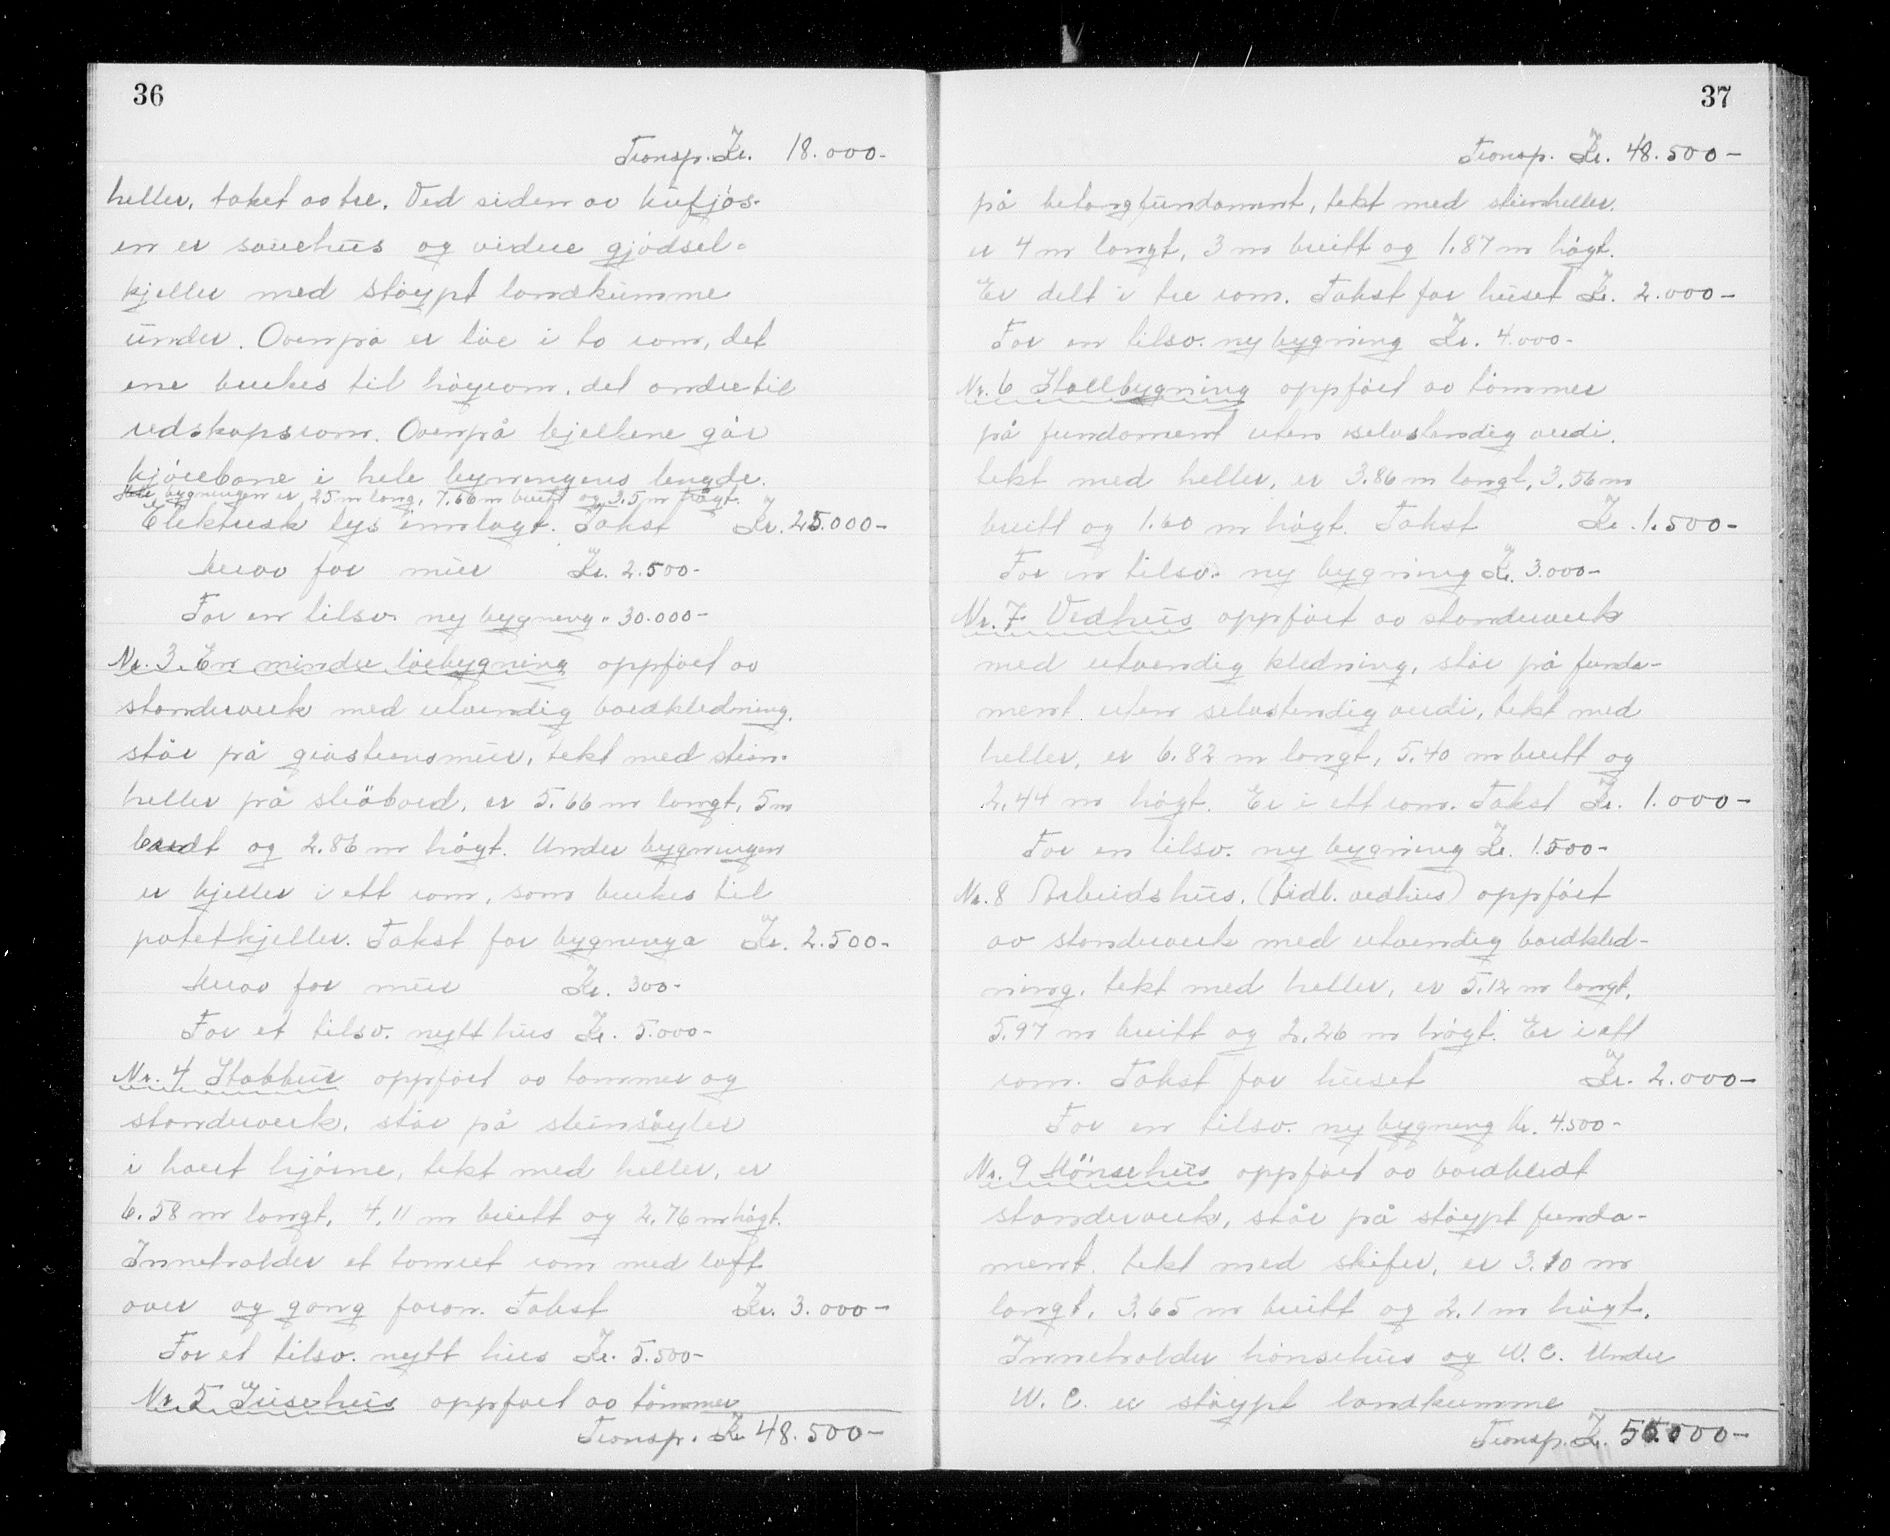 36
Transp. Kr. 18.000-
heller, taket av tre. Ved siden av kufjøs-
en er sauehus og videre gjødsel-
kjeller med støypt landkumme
under. Ovenpå er løe i to rom, det
ene brukes til høyrom, det andre til
redskapsrom. Ovenpå bjelkene går
kjørebane i hele bymingens lengde.
Hele bygningen er 25 m lang, 7.66 m breitt og 3.5 m høgt.
Elektrisk lys innlagt. Takst Kr. 25.000-
Herav for mur Kr. 2.500-
For en tilsv. ny bygning " 30.000-
Nr. 3. En mindre løebygning oppført av
standerverk med utvendig bordkledning,
står på gråsteinsmur, tekt med stein-
heller på slåbord, er 5.66 m langt, 5 m
breidt og 2.86 m høgt. Under bygningen
er kjeller i ett rom, som brukes til
potetkjeller. Takst for bygninga Kr. 2.500-
Herav for mur Kr. 300-
For et tilsv. nytt hus Kr. 5.000-
Nr. 4 Stabbur oppført av tømmer og
standerverk, står på steinsøyler
i hvert hjørne, tekt med heller, er
6.58 m langt, 4,11 m breitt og 2,76 m høgt.
Inneholder et tømret rom med loft
over og gang foran. Takst Kr. 3.000-
For et tilsv. nytt hus Kr. 5.500-
Nr. 5 Grisehus oppført av tømmer
Transp. Kr 48.500-
37
Transp. Kr. 48.500-
på betongfundament, tekt med steinheller.
er 4 m langt, 3 m breitt og 1.87 m høgt.
Er delt i tre rom. Takst for huset Kr. 2.000-
For en tilsv. ny bygning Kr. 4.000-
Nr. 6 Stallbygning oppført av tømmer
på fundament uten selvstendig verdi,
tekt med heller, er 3.86 m langt, 3,56 m
breitt og 1.60 m høgt. Takst Kr. 1.500-
For en tilsv. ny bygning Kr. 3.000-
Nr. 7 Vedhus oppført av standerverk
med utvendig kledning, står på funda-
ment uten selvstendig verdi, tekt med
heller, er 6.82 m langt, 5.40 m breitt og
2,44 m høgt. Er i ett rom. Takst Kr. 1.000-
For en tilsv. ny bygning Kr. 1.500-
Nr. 8 Arbeidshus, (tidl. vedhus) oppført
av standerverk med utvendig bordkled-
ning, tekt med heller, er 5,12 m langt,
5.97 m breitt og 2,26 m høgt. Er i ett
rom. Takst for huset Kr. 2.000-
For en tilsv. ny bygning Kr. 4.500-
Nr. 9 Hönsehus oppført av bordkledt
standerverk, står på støypt funda-
ment. tekt med skifer, er 3.10 m
langt, 3,65 m breitt og 2,1 m høgt.
Inneholder hønsehus og W. C. Under
W. C. er støypt landkumme
Transp. Kr. 55.000-